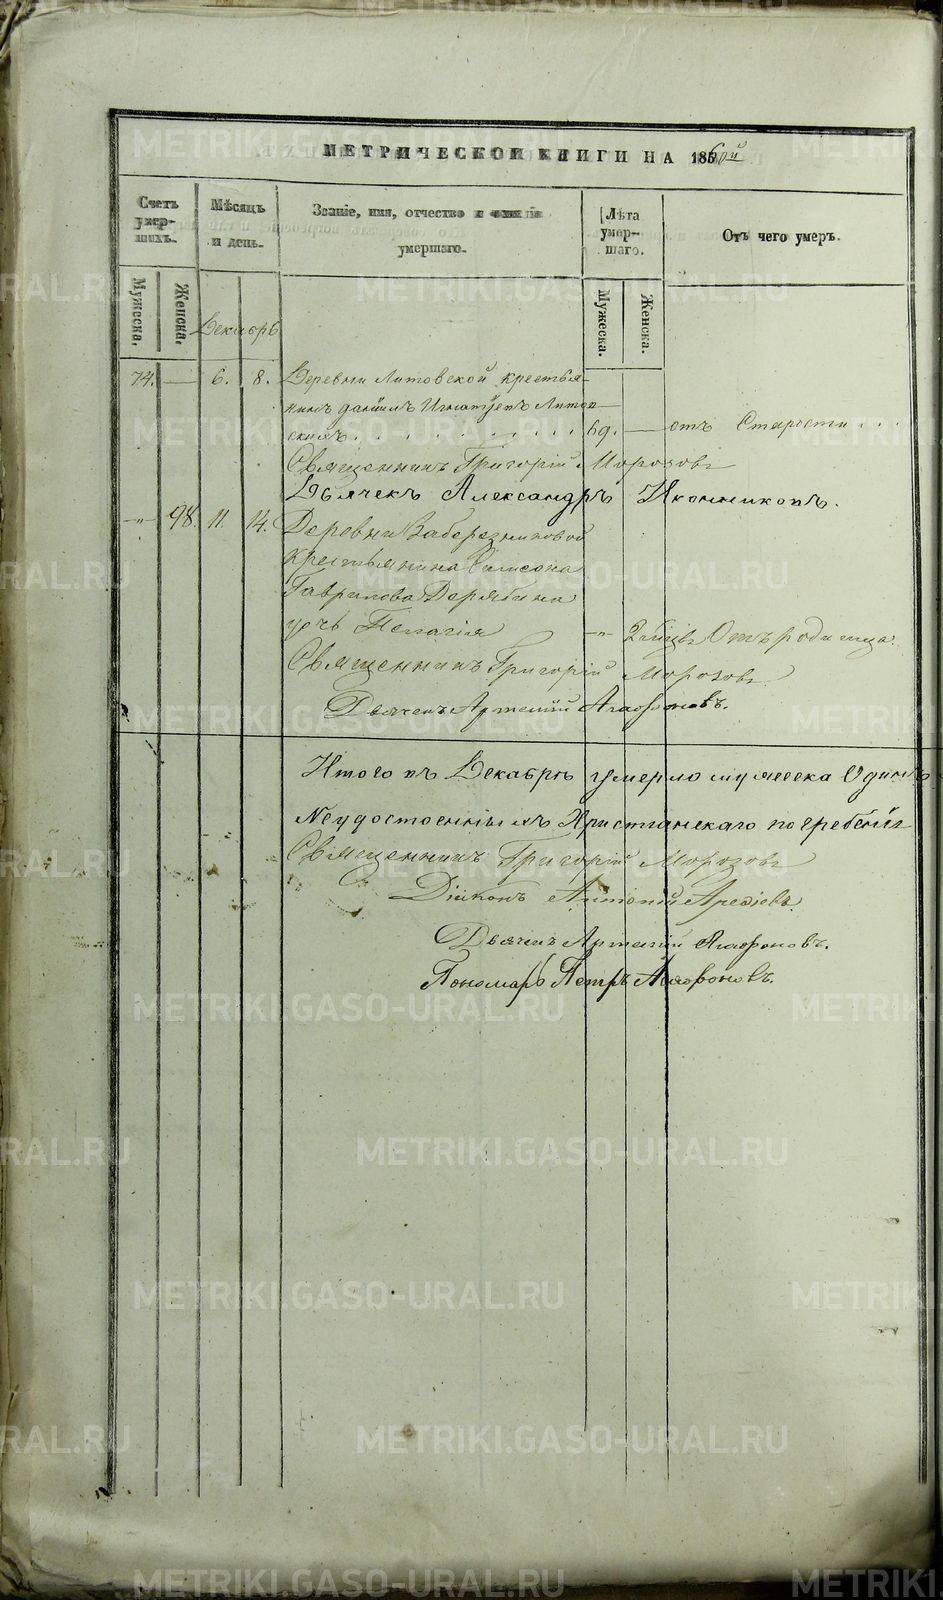 МЕТРИЧЕСКОЙ КНИГИ НА 1860й
Счетъ умер-шихъ.
Мѣсяцъ и день.
Званіе, имя, отчество и фамилія умершаго.
Лѣта умер-шаго.
Отъ чего умеръ.
Мужеска.
Женска.
Мужеска.
Женска.
Декабрь
74. — 6. 8. Деревни Литовской крестья-
нинъ Даніилъ Игнатьевъ Литов-
скихъ. 69. — отъ Старости
Священникъ Григорій Морозовъ
Дьячекъ Александръ Иконниковъ.
-"- 98. 11. 14. Деревни Заберезниковой
крестьянина Симеона
Гаврилова Дерябина
дочь Пелагія -"- 2 мѣсцъ Отъ родимца.
Священникъ Григорій Морозовъ
Дьячекъ Артемій Агафоновъ.
Итого въ Декабрѣ умерло мужеска Одинъ
Неудостоенныхъ Христіанскаго погребенія
Священникъ Григорій Морозовъ
Діаконъ Антоній
Дьячекъ Артемій Агафоновъ.
Пономарь Петръ Агафоновъ.
METRIKI.GASO-URAL.RU